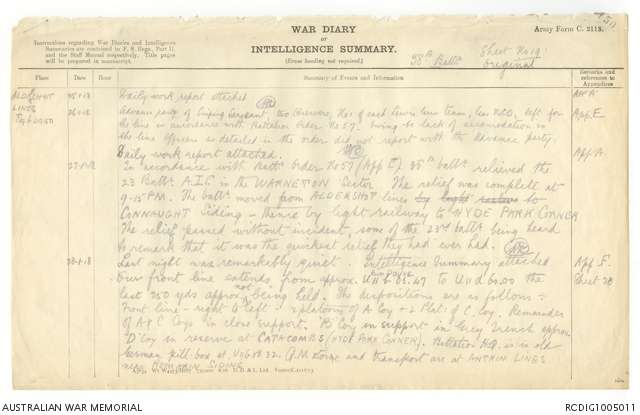 WAR DIARY
or
INTELLIGENCE SUMMARY.
(Erase heading not required.)
Army Form C. 2118.
Instructions regarding War Diaries and Intelligence
Summaries are contained in F. S. Regs., Part II.
and the Staff Manual respectively. Title pages
will be prepared in manuscript.
35th Battn.
Sheet No 19
Original
Place
Date
Hour
Summary of Events and Information
Remarks and
references to
Appendices
ALDERSHOT
LINES
25-1-18
Daily work report attached
App A.
26-1-18
Advance party of Sniping Sergeant, two Observers, No 1 of each Lewis Gun team, Gas NCO, left for
the line in accordance with Battalion Order No 57. Owing to lack of accomodation in
the line Officers as detailed in the order did not report with the advance party.
App E.
Daily work report attached.
App A.
27-1-18
In accordance with Battn Order No 57 (App E) 35th Battn relieved the
23 Battn A.I.F. in the WARNETON Sector. The relief was complete at
9-15 PM. The battn moved from ALDERSHOT lines by to
CONNAUGHT Siding - thence by light railway to HYDE PARK CORNER
The relief passed without incident, some of the 23rd battn being heard
to remark that it was the quickest relief they had ever had.
28-1-18
Last night was remarkably quiet. Intelligence Summary attached
App F.
Our front line extends from approx. to the
Sheet 28
last 250 yds approx not being held. The dispositions are as follows :-
Front line - right to left - 2 platoons of A Coy & 2 Plat. of C. Coy. Remainder
of A & C Coys in close support. "B" Coy in support in Grey Trench approx
"D" Coy in reserve at CATACOMBS (HYDE PARK CORNER). Battalion HQ. is in old
German pill box at Q.M. Store and transport are at LINES
near SIDING
AUSTRALIAN WAR MEMORIAL
RCDIG1005011